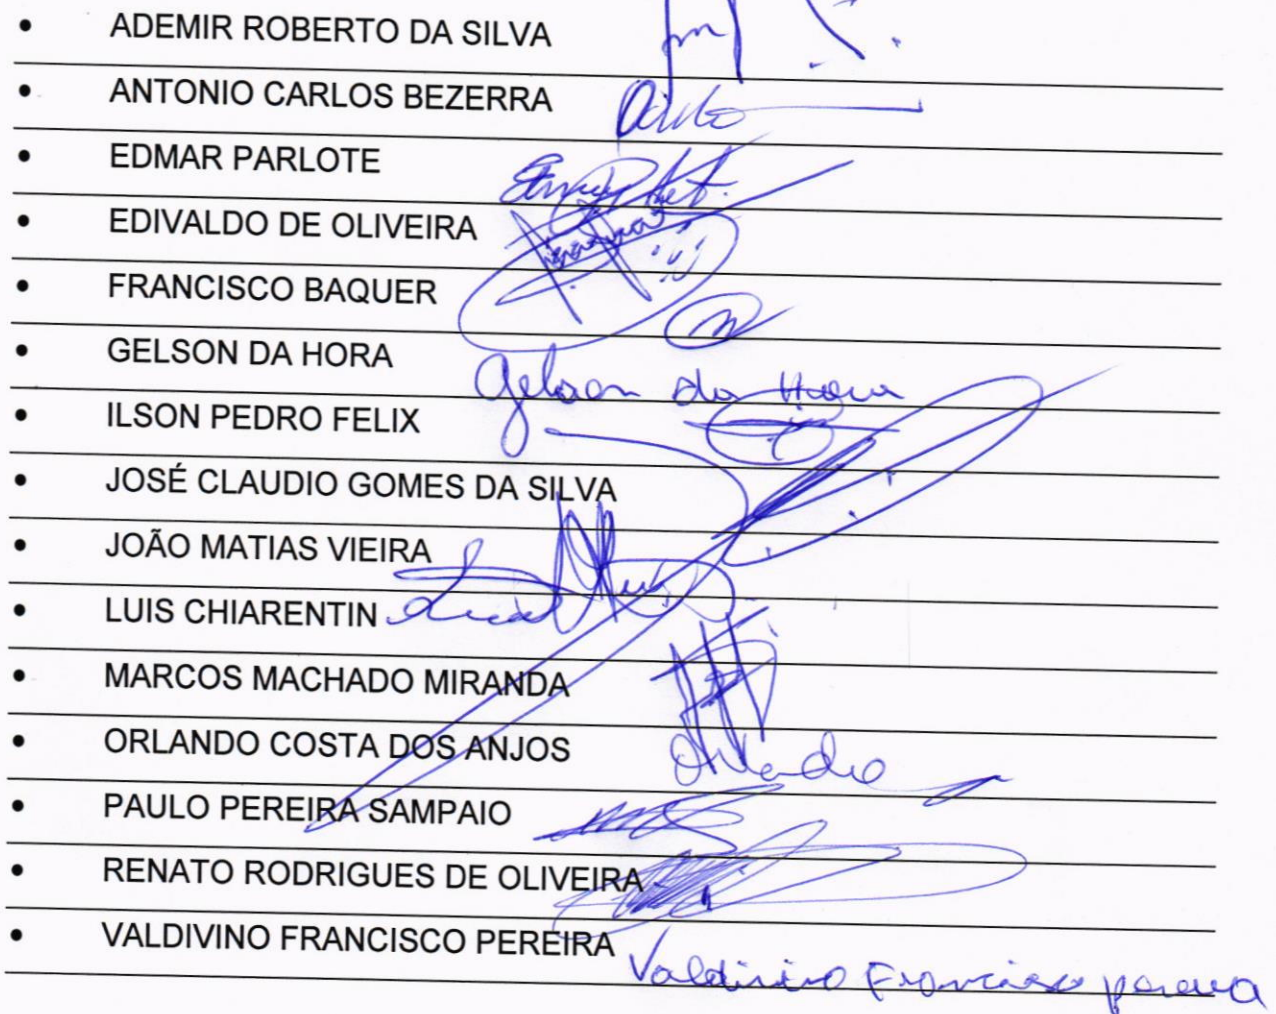 • ADEMIR ROBERTO DA SILVA
• ANTONIO CARLOS BEZERRA
• EDMAR PARLOTE
• EDIVALDO DE OLIVEIRA
• FRANCISCO BAQUER
• GELSON DA HORA
Gelson da Hora
• ILSON PEDRO FELIX
• JOSÉ CLAUDIO GOMES DA SILVA
• JOÃO MATIAS VIEIRA
• LUIS CHIARENTIN
• MARCOS MACHADO MIRANDA
• ORLANDO COSTA DOS ANJOS
Orlando
• PAULO PEREIRA SAMPAIO
• RENATO RODRIGUES DE OLIVEIRA
• VALDIVINO FRANCISCO PEREIRA
Valdivino Francisco pereira